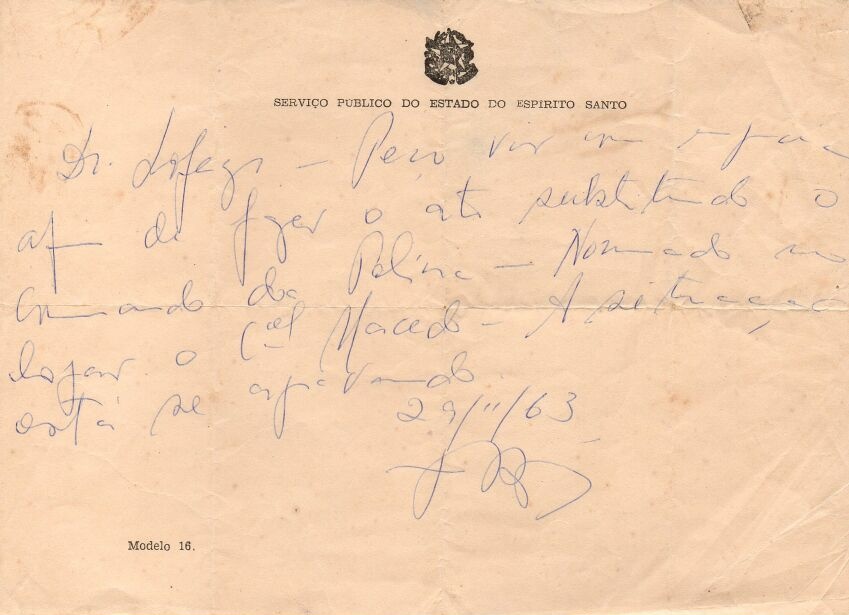 SERVIÇO PÚBLICO DO ESTADO DO ESPÍRITO SANTO
Dr. — Peço vir com
afim de fazer o ato substituindo o
Comando da Polícia — Nomeado no
lugar o Cel Macedo — A situação
está se agravando.
29/11/63
Modelo 16.